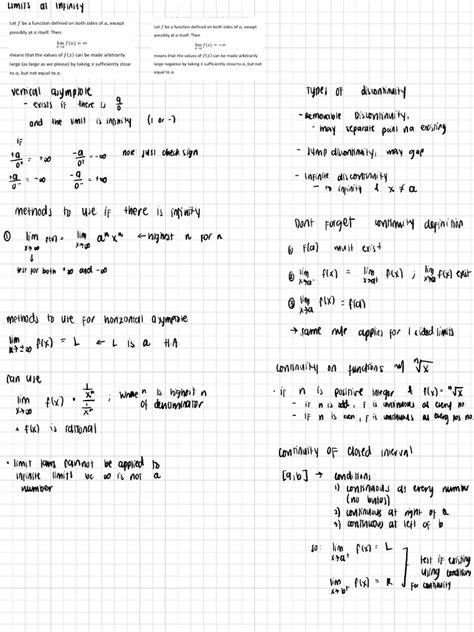 Limits at infinity
Let f be a function defined on both sides of a, except
possibly at a itself. Then
lim f(x) = ∞
x→a
means that the values of f(x) can be made arbitrarily
large (as large as we please) by taking x sufficiently close
to a, but not equal to a.
Let f be a function defined on both sides of a, except
possibly at a itself. Then
lim f(x) = -∞
x→a
means that the values of f(x) can be made arbitrarily
large negative by taking x sufficiently close to a, but not
equal to a.
vertical asymptote
- exists if there is a/0
and the limit is infinity (+ or -)
if
+a/0⁺ = +∞ -a/0⁺ = -∞ note: just check sign
+a/0⁻ = -∞ -a/0⁻ = +∞
methods to use if there is infinity
① lim f(x) = lim aⁿxⁿ ← highest n for n
x→∞ x→∞
↓
test for both +∞ and -∞
methods to use for horizontal asymptote
lim f(x) = L ← L is a HA
x→±∞
can use
lim f(x) · (1/xⁿ)/(1/xⁿ) ; where n is highest n
x→∞ of denominator
• f(x) is rational
• limit laws cannot be applied to
infinite limits bc ∞ is not a
number
Types of discontinuity
- Removable Discontinuity,
- may separate
- Jump discontinuity, may gap
- Infinite discontinuity
- → infinity & x ≠ a
Dont Forget continuity definition
① f(a) must exist
② lim f(x) = lim f(x) ; lim f(x) exist
x→a⁻ x→a⁺ x→a
③ lim f(x) = f(a)
x→a
→ same rule applies for 1 sided limits
continuity on functions w/ ⁿ√x
• if n is positive integer & f(x) = ⁿ√x
- if n is odd, f is continuous at every no.
- if n is even, f is continuous at every pos no.
continuity of closed interval
[a,b] → conditions
1) continuous at every number
(no holes)
2) continuous at right of a
3) continuous at left of b
so: lim f(x) = L
x→a⁺
test if existing
using conditions
for continuity
lim f(x) = R
x→b⁻